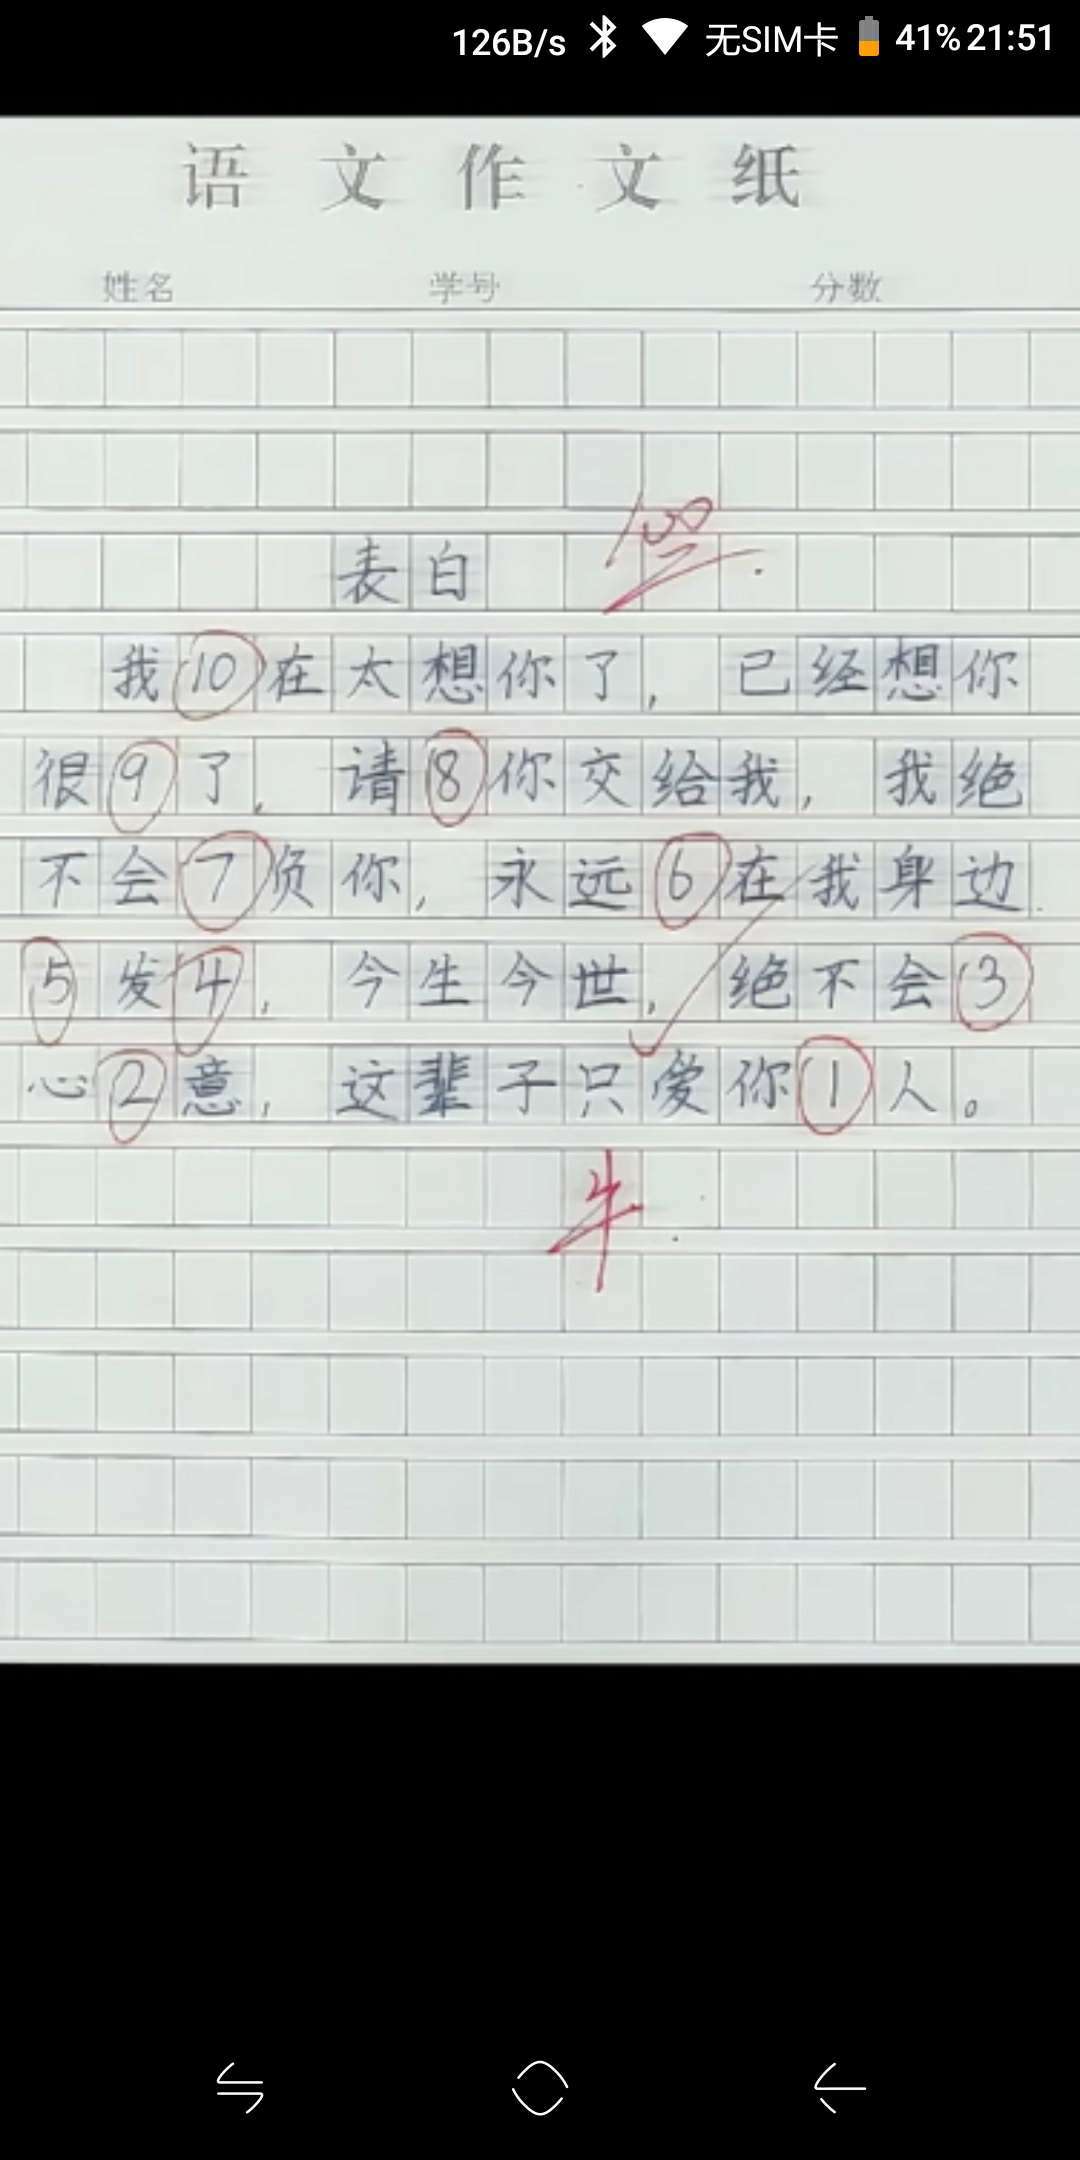 126B/s 无SIM卡 41% 21:51
语文作文纸
姓名 学号 分数
100
表白
我10在太想你了，已经想你
很9了，请8你交给我，我绝
不会7负你，永远6在我身边.
5发4，今生今世，绝不会3
心2意，这辈子只爱你1人。
牛